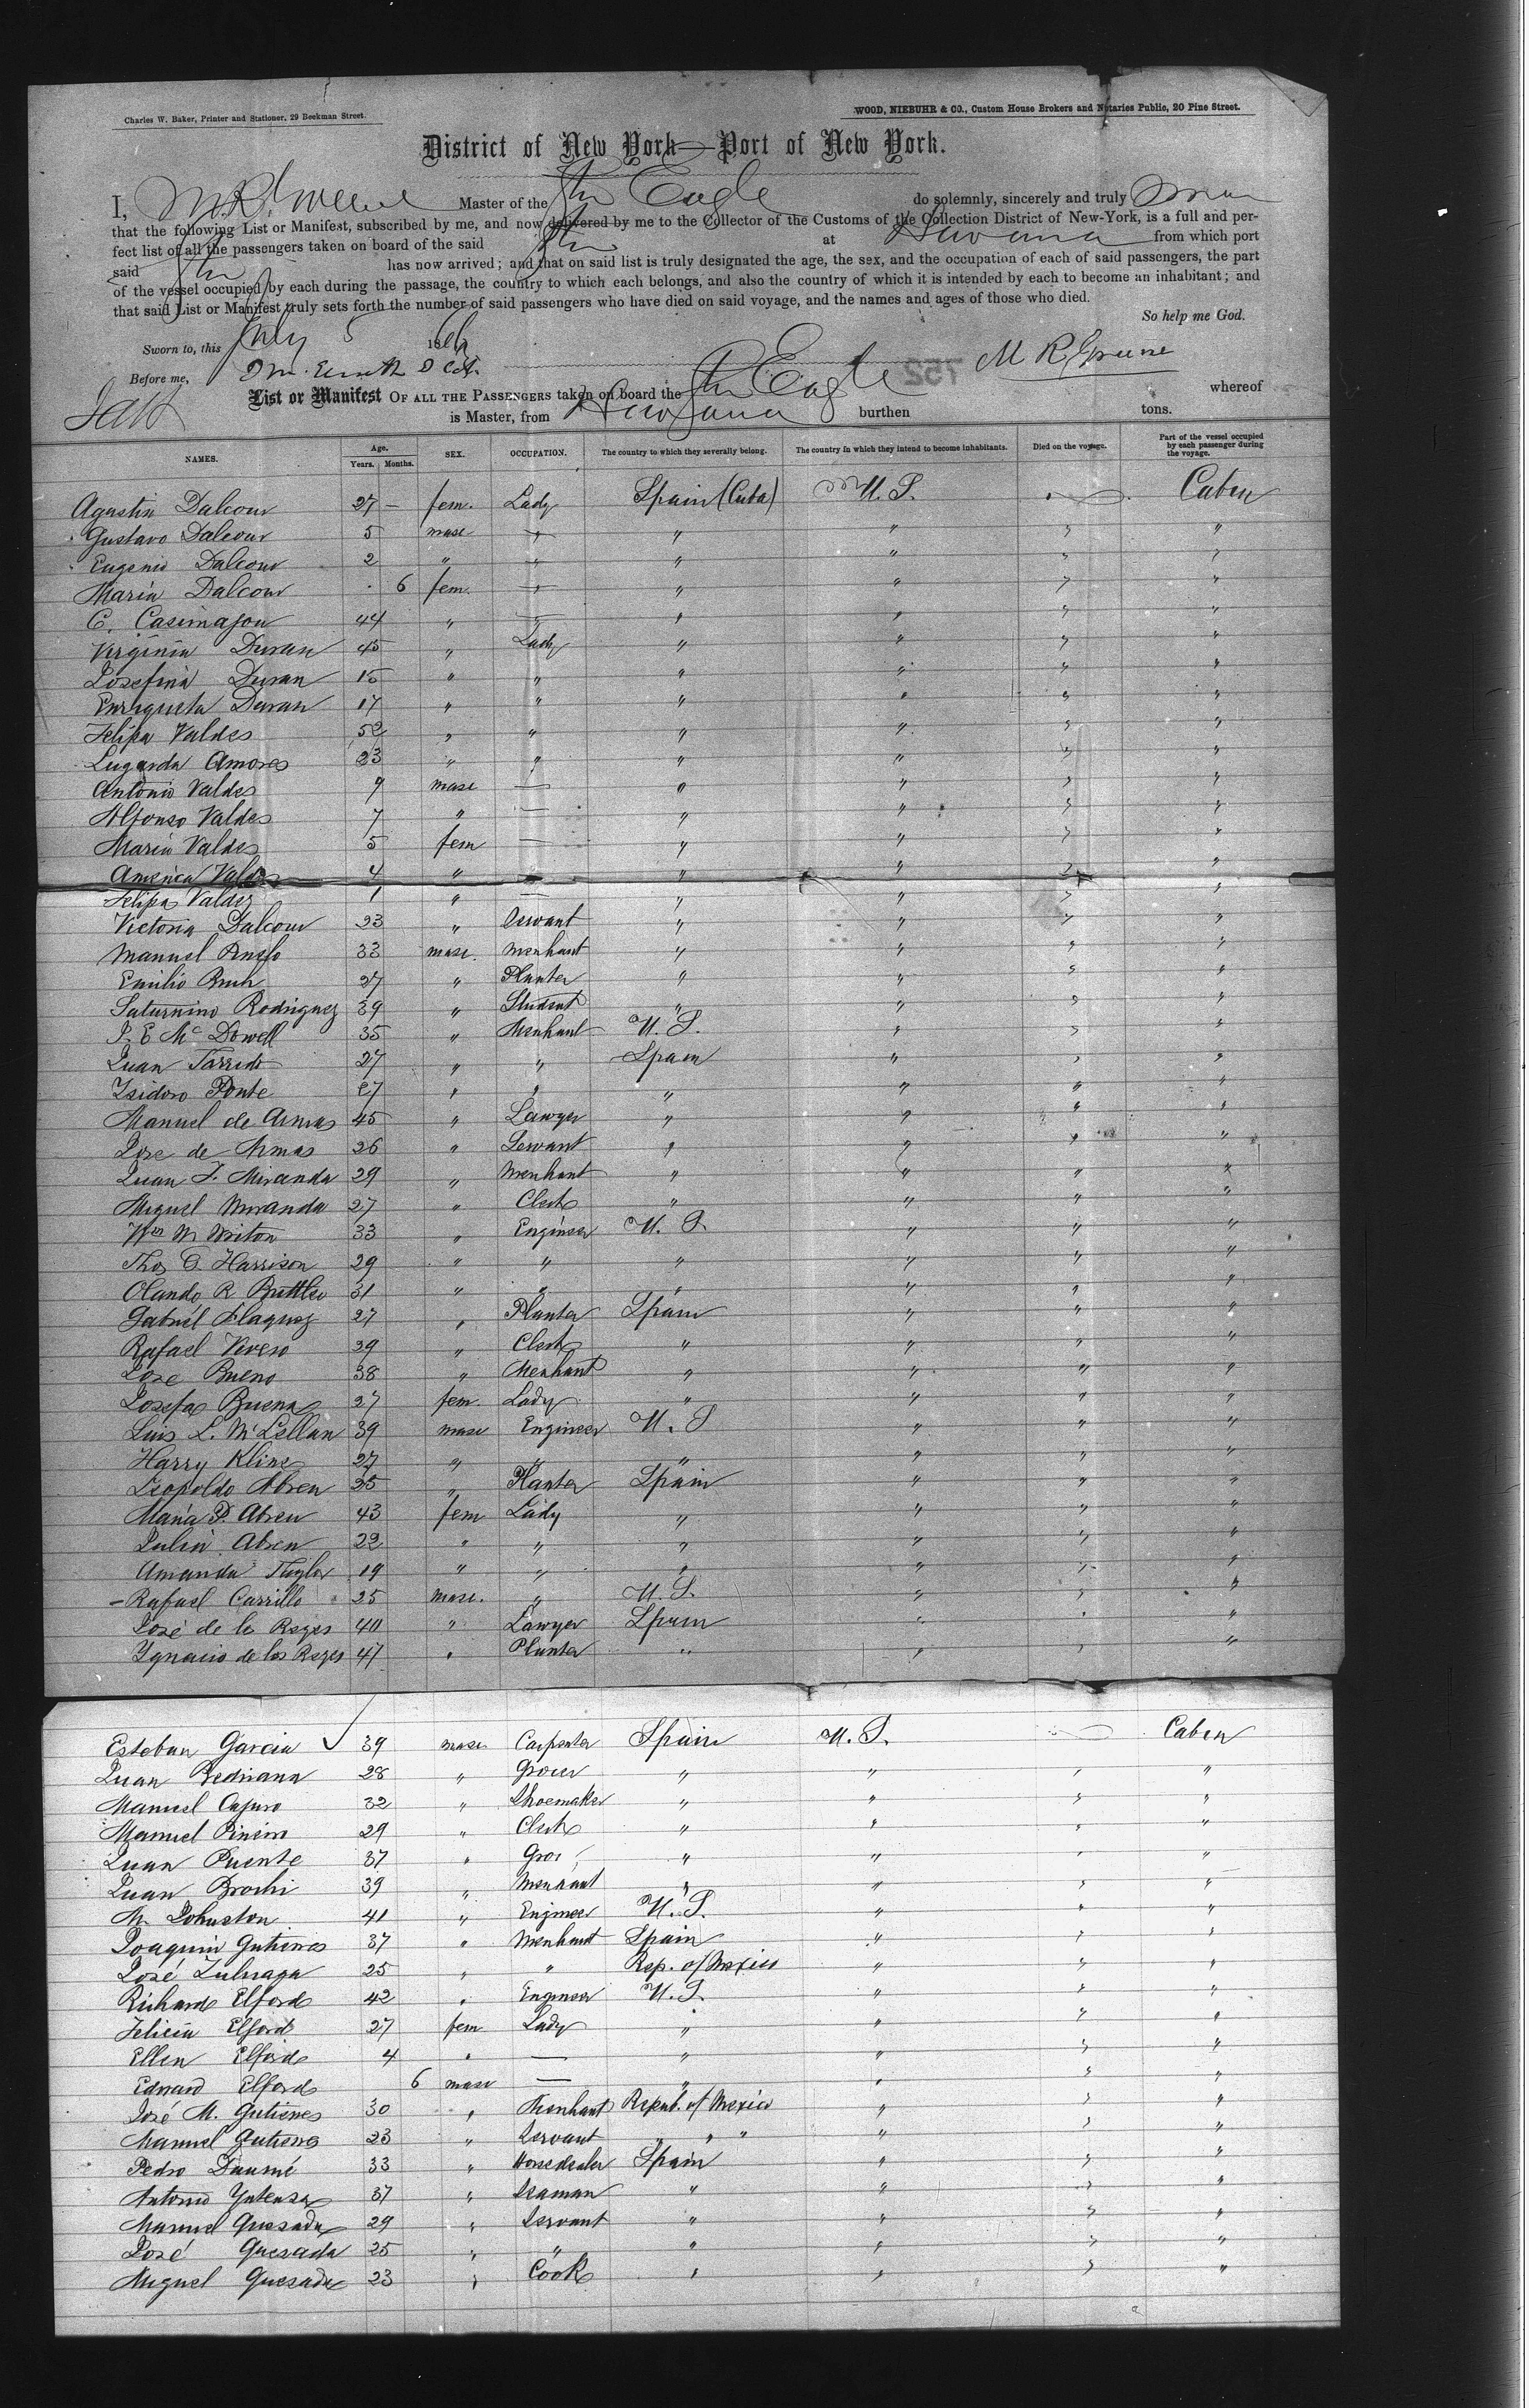 Charles W. Baker, Printer and Stationer, 29 Beekman Street.
WOOD, NIEBUHR & CO., Custom House Brokers and Notaries Public, 20 Pine Street.
District of New York—Port of New York.
I, M. R. Greene Master of the Str Eagle do solemnly, sincerely and truly swear
that the following List or Manifest, subscribed by me, and now delivered by me to the Collector of the Customs of the Collection District of New-York, is a full and per-
fect list of all the passengers taken on board of the said Str at Havana from which port
said Str has now arrived; and that on said list is truly designated the age, the sex, and the occupation of each of said passengers, the part
of the vessel occupied by each during the passage, the country to which each belongs, and also the country of which it is intended by each to become an inhabitant; and
that said List or Manifest truly sets forth the number of said passengers who have died on said voyage, and the names and ages of those who died.
So help me God.
Sworn to, this July 5 186
Before me, M R Greene
752
List or Manifest OF ALL THE PASSENGERS taken on board the Str Eagle whereof
is Master, from Havana burthen tons.
NAMES. Age. Years. Months. SEX. OCCUPATION. The country to which they severally belong. The country in which they intend to become inhabitants. Died on the voyage. Part of the vessel occupied by each passenger during the voyage.
Agustin Dalcour 27 — fem. Lady Spain (Cuba) U. S. Caben
Gustavo Dalcour 5 masc — " " " "
Eugenio Dalcour 2 " " " " " "
Maria Dalcour 6 fem. — " " " "
C. Casimajou 44 " — " " " "
Virginia Duran 45 " Lady " " " "
Josefina Duran 15 " " " " " "
Enriqueta Duran 17 " " " " " "
Felipa Valdes 52 " " " " " "
Lugarda Amores 23 " " " " " "
Antonio Valdes 9 masc — " " " "
Alfonso Valdes 7 " — " " " "
Maria Valdes 5 fem — " " " "
America Valdes 4 " " " " " "
Felipa Valdez 1 " — " " " "
Victoria Dalcour 23 " Servant " " " "
Manuel 33 masc. Merchant " " " "
Emilio 27 " Planter " " " "
Saturnino Rodriguez 39 " Student " " " "
J. E. McDowell 35 " Merchant U. S. " " "
Juan Tarrido 27 " " Spain " " "
Isidoro Ponte 27 " " " " " "
Manuel de Armas 45 " Lawyer " " " "
Jose de Armas 26 " Servant " " " "
Juan F. Miranda 29 " Merchant " " " "
Miguel Miranda 27 " Clerk " " " "
Wm M Writon 33 " Engineer U. S. " " "
Thos G. Harrison 29 " " " " " "
Olando R Buttler 31 " " " " " "
Gabriel Blaquez 27 " Planter Spain " " "
Rafael Vivero 39 " Clerk " " " "
Jose Bueno 38 " Merchant " " " "
Josefa Buena 27 fem. Lady " " " "
Luis L. McLellan 39 masc Engineer U. S " " "
Harry Kline 27 " " " " " "
Leopoldo Abreu 25 " Planter Spain " " "
Maria D. Abreu 43 fem Lady " " " "
Julia Abreu 22 " " " " " "
Amanda Taylor 19 " " " " " "
- Rafael Carrillo 25 masc. " U. S. " " "
José de los Reyes 40 " Lawyer Spain " " "
Ygnacio de los Reyes 47 " Planter " " " "
Esteban Garcia 39 masc Carpenter Spain U. S. — Caben
Juan Pedriana 28 " Grocer " " " "
Manuel 32 " Shoemaker " " " "
Manuel Pineiro 29 " Clerk " " " "
Juan Puente 37 " Groc " " " "
Juan Brochi 39 " Merchant " " " "
M. Johnston 41 " Engineer U. S. " " "
Joaquin Gutierres 37 " Merchant Spain " " "
José Zuluaga 25 " " Rep. of Mexico " " "
Richard Elford 42 " Engineer U. S. " " "
Felicia Elford 27 fem Lady " " " "
Ellen Elford 4 " — " " " "
Edward Elford 6 masc — " " " "
José M. Gutierres 30 " Merchant Repub. of Mexico " " "
Manuel Gutierres 23 " Servant " " " " " "
Pedro Daumé 33 " Horsedealer Spain " " "
Antonio 37 " Seaman " " " "
Manuel Quesada 29 " Servant " " " "
José Quesada 25 " " " " " "
Miguel Quesada 23 " Cook " " " "